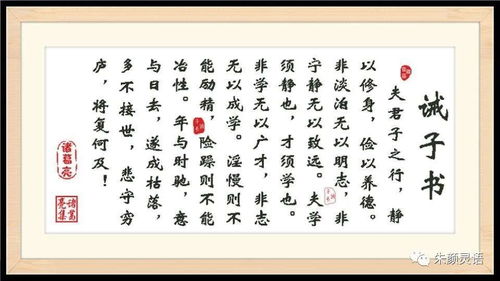 诫子书
夫君子之行，静
以修身，俭以养德。
非淡泊无以明志，非
宁静无以致远。夫学
须静也，才须学也。
非学无以广才，非志
无以成学。淫慢则不
能励精，险躁则不能
冶性。年与时驰，意
与日去，遂成枯落，
多不接世，悲守穷
庐，将复何及！
诸葛亮
诸葛
亮集
朱颜灵语